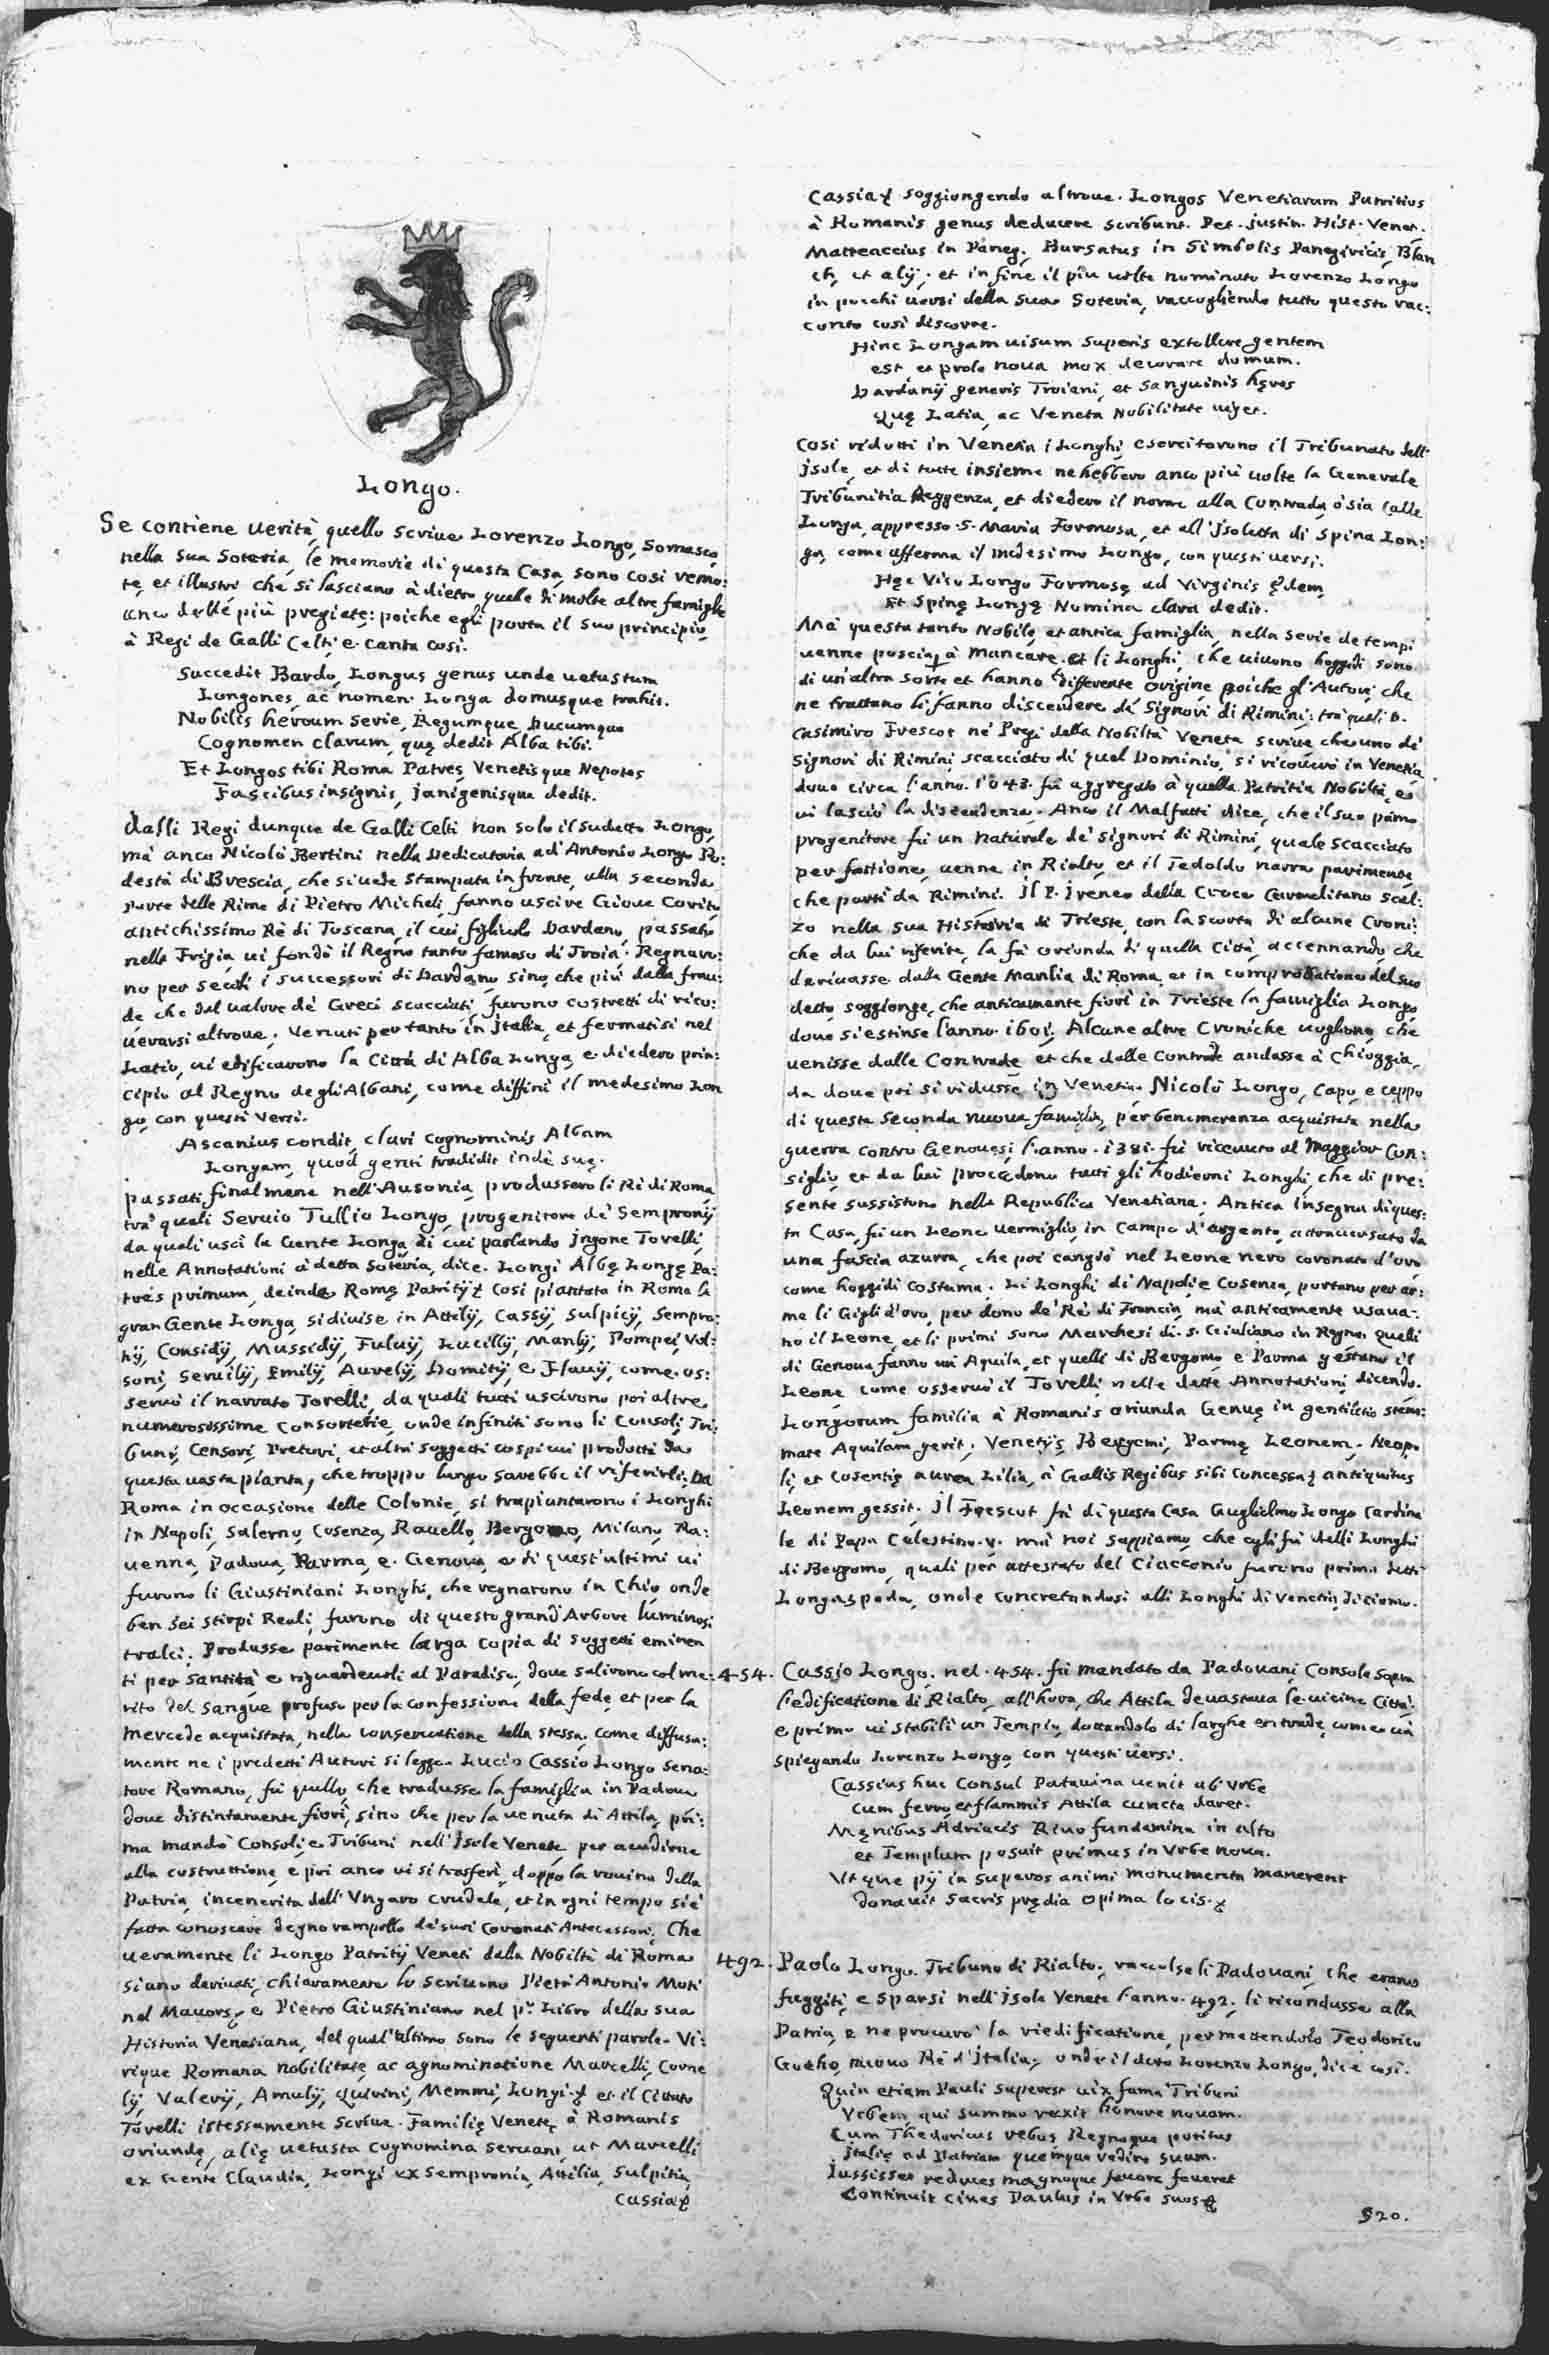 Longo.
Se contiene verità, quello scriue Lorenzo Longo, Somasco
nella sua Soteria, le memorie di questa Casa, sono cosi remo:
te, et illustri, che si lasciano à dietro quelle di molte altre famiglie
anco delle più pregiate: poiche egli porta il suo principio
à Regi de Galli Celti, e canta cosi.
Succedit Bardo, Longus genus unde uetustum
Longones, ac nomen Longa domusque trahit.
Nobilis heroum serie, Regumque, Ducumque
Cognomen clarum, quę dedit Alba tibi.
Et Longos tibi Roma Patres, Venetisque Nepotes
Fascibus insignis, janigenisque dedit.
Dalli Regi dunque de Galli Celti non solo il sudetto Longo,
mà anco Nicolò Bertini nella Dedicatoria ad Antonio Longo Po:
destà di Brescia, che si uede stampata in fronte, alla seconda
parte delle Rime di Pietro Micheli, fanno uscire Gioue Corito
antichissimo Rè di Toscana, il cui figliuolo Dardano, passato
nella Frigia, ui fondò il Regno tanto famoso di Troia. Regnaro:
no per secoli i successori di Dardano, sino, che più dalla frau:
de che dal ualore de Greci scacciati, furono costretti di rico:
uerarsi altroue. Venuti per tanto in jtalia, et fermatisi nel
Latio, ui edificarono la Città di Alba Longa, e diedero prin:
cipio al Regno degli Albani, come diffinì il medesimo Lon
go, con questi versi.
Ascanius condit, clari cognominis Albam
Longam, quod genti tradidit inde suę.
passati finalmene nell'Ausonia, produssero li Rè di Roma
trà quali Seruio Tullio Longo, progenitore de Sempronij
da quali uscì la Gente Longa, di cui parlando jrgone Torelli,
nelle Annotationi à detta Soteria, dice. Longi Albę Longę Pa:
tres primum, deinde Romę Patritij. Cosi piantata in Roma la
gran Gente Longa, si diuise in Attilij, Cassij, Sulpicij, Sempro:
nij, Considij, Mussidij, Fuluij, Lucillij, Manlij, Pompei, Vol:
soni, Seruilij, Emilij, Aurelij, Domitij, e Flauij, come os:
seruò il narrato Torelli, da quali tutti uscirono poi altre
numerosissime Consorterie, onde infiniti sono li Consoli, Tri:
buni, Censori, Pretori, et altri soggetti cospicui prodotti da
questa uasta pianta, che troppo lungo sarebbe il riferirli. Da
Roma in occasione delle Colonie, si trapiantarono i Longhi
in Napoli, Salerno, Cosenza, Rauello, Bergomo, Milano, Ra:
uenna, Padoua, Parma, e Genoua, e di quest'ultimi ui
furono li Giustiniani Longhi, che regnarono in Chio, onde
ben sei stirpi Reali, furono di questo grand'Arbore luminosi
tralci. Produsse parimente larga copia di soggetti eminen
ti per santità e riguardeuoli al Paradiso, doue salirono col me:
rito del sangue profuso per la confessione della fede, et per la
mercede acquistata, nella conseruatione della stessa, come diffusa:
mente ne i predetti Autori si legge. Lucio Cassio Longo Sena:
tore Romano, fù quello, che tradusse la famiglia in Padoua
doue distintamente fiorì, sino che per la uenuta di Attila, pri:
ma mandò Consoli, e Tribuni nell'Isole Venete, per accudirne
alla costruttione, e poi anco ui si trasferì, doppo la rouina della
Patria, incenerita dall'Vngaro crudele, et in ogni tempo si è
fatta conoscere degno rampollo de suoi Coronati Antecessori. Che
ueramente li Longo Patritij Veneti dalla Nobiltà di Roma
siano deriuati, chiaramente lo scriuono Pietr'Antonio Moti
nel Mauors, e Pietro Giustiniano nel p.º Libro della sua
Historia Venetiana, del qual'ultimo sono le seguenti parole. Vi:
rique Romana nobilitate, ac agnominatione Marcelli, Corne
lij, Valerij, Amulij, Quirini, Memmi, Longi. et il Citato
Torelli istessamente scriue. Familię Venetę à Romanis
oriundę, alię uetusta cognomina seruant, ut Marcelli
ex Gente Claudia, Longi ex Sempronia, Attilia, Sulpitia
Cassia
Cassia soggiongendo altroue. Longos Venetiarum Patritios
à Romanis genus deducere scribunt. Pet. justin. Hist. Venet.
Matteaccius in Paneg. Bursatus in Simbolis Panegiricis, Blan
ch, et alij. et in fine il più uolte nominato Lorenzo Longo
in pochi uersi della sua Soteria, raccogliendo tutto questo rac:
conto cosi discorre.
Hinc Longam uisum superis extollere gentem
est, et prole noua mox decorare domum.
Dardanij generis Troiani, et sanguinis hęres
Quę Latia, ac Veneta Nobilitate uiget.
Cosi ridotti in Venetia i Longhi, esercitarono il Tribunato dell'
jsole, et di tutte insieme ne hebbero anco più uolte la Generale
Tribunitia Reggenza, et diedero il nome alla Contrada, ò sia Calle
Longa, appresso S. Maria Formosa, et all'jsoletta di Spina Lon:
ga, come afferma il medesimo Longo, con questi uersi.
Hęc Vico Longo Formosę ad Virginis ędem
Et Spinę Longę Nomina clara dedit.
Mà questa tanto Nobile, et antica famiglia, nella serie de tempi
uenne poscia à mancare. et li Longhi, che uiuono hoggidi sono
di un'altra sorte et hanno differente origine, poiche gl'Autori, che
ne trattano li fanno discendere da Signori di Rimini: trà quali D.
Casimiro Frescot ne' Pregi della Nobiltà Veneta scriue che uno de
Signori di Rimini scacciato di quel Dominio, si ricouerò in Venetia
doue circa l'anno. 1043. fù aggregato à quella Patritia Nobiltà, e
ui lasciò la discendenza. Anco il Malfatti dice, che il suo primo
progenitore fù un naturale de Signori di Rimini, quale scacciato
per fattione, uenne in Rialto, et il Tedoldo narra parimente
che partì da Rimini. Il P. jreneo della Croce Carmelitano scal:
zo nella sua Historia di Trieste, con la scorta di alcune Croni:
che da lui riferite, la fà oriunda di quella Città, accennando, che
deriuasse dalla Gente Manlia di Roma, et in comprobatione del suo
detto soggionge, che anticamente fiorì in Trieste la famiglia Longo
doue si estinse l'anno 1601. Alcune altre Croniche uogliono, che
uenisse dalle Contrade et che dalle Contrade andasse à Chioggia,
da doue poi si ridusse in Venetia. Nicolò Longo, Capo, e ceppo
di questa seconda nuoua famiglia, per benemerenza acquistata nella
guerra contro Genouesi l'anno. 1381. fù riceuuto al Maggior Con:
siglio, et da lui procedono tutti gli hodierni Longhi, che di pre:
sente sussistono nella Republica Venetiana. Antica Insegna di ques:
ta Casa, fù un Leone uermiglio, in Campo d'argento, attrauersato da
una fascia azurra, che poi cangiò nel Leone nero coronato d'oro
come hoggidi costuma. Li Longhi di Napoli, e Cosenza, portano per ar:
me li Gigli d'oro, per dono de' Rè di Francia, mà anticamente usaua:
no il Leone, et li primi sono Marchesi di S. Giuliano in Regno. quelli
di Genoua fanno un'Aquila, et quelli di Bergomo e Parma gestano il
Leone come osseruò il Torelli nelle dette Annotationi, dicendo.
Longorum familia à Romanis oriunda Genuę in gentilitio stem:
mate Aquilam gerit; Venetijs, Bergomi, Parmę Leonem. Neapo
li, et Cosentię aurea Lilia, à Gallis Regibus sibi concessa, antiquitus
Leonem gessit. il Frescot fà di questa Casa Guglielmo Longo Cardina
le di Papa Celestino. V. mà noi sappiamo, che egli fù delli Longhi
di Bergomo, quali per attestato del Ciacconio furono prima detti
Longaspada, onde concretandosi alli Longhi di Venetia, diciamo.
454. Cassio Longo. nel .454. fù mandato da Padouani, Console sopra
l'edificatione di Rialto, all'hora, che Attila deuastaua le uicine Città.
e primo ui stabilì un Tempio, dottandolo di larghe entrade, come uà
spiegando Lorenzo Longo, con questi uersi.
Cassius huc Consul Patauina uenit ab Vrbe
Cum ferro, et flammis Attila cuncta daret.
Męnibus Adriacis Riuo fundamina in alto
et Templum posuit primus in Vrbe noua.
Vtque pij in superos animi monumenta manerent
donauit sacris prędia opima locis.
492. Paolo Longo. Tribuno di Rialto, raccolse li Padouani, che erano
fuggiti, e sparsi nell'jsole Venete l'anno. 492. li ricondusse alla
Patria, e ne procurò la riedificatione, permettendolo Teodorico
Gotho, nuouo Rè d'jtalia, onde il detto Lorenzo Longo, dice cosi.
Quin etiam Pauli superest uix fama Tribuni
Vrbem, qui summo rexit honore nouam.
Cum Thedoricus rebus, Regnoque potitus
jtalię ad Patriam quemque redire suum.
Iussisset reduces magnoque fauore foueret
Continuit ciues Paulus in Vrbe suos
520.